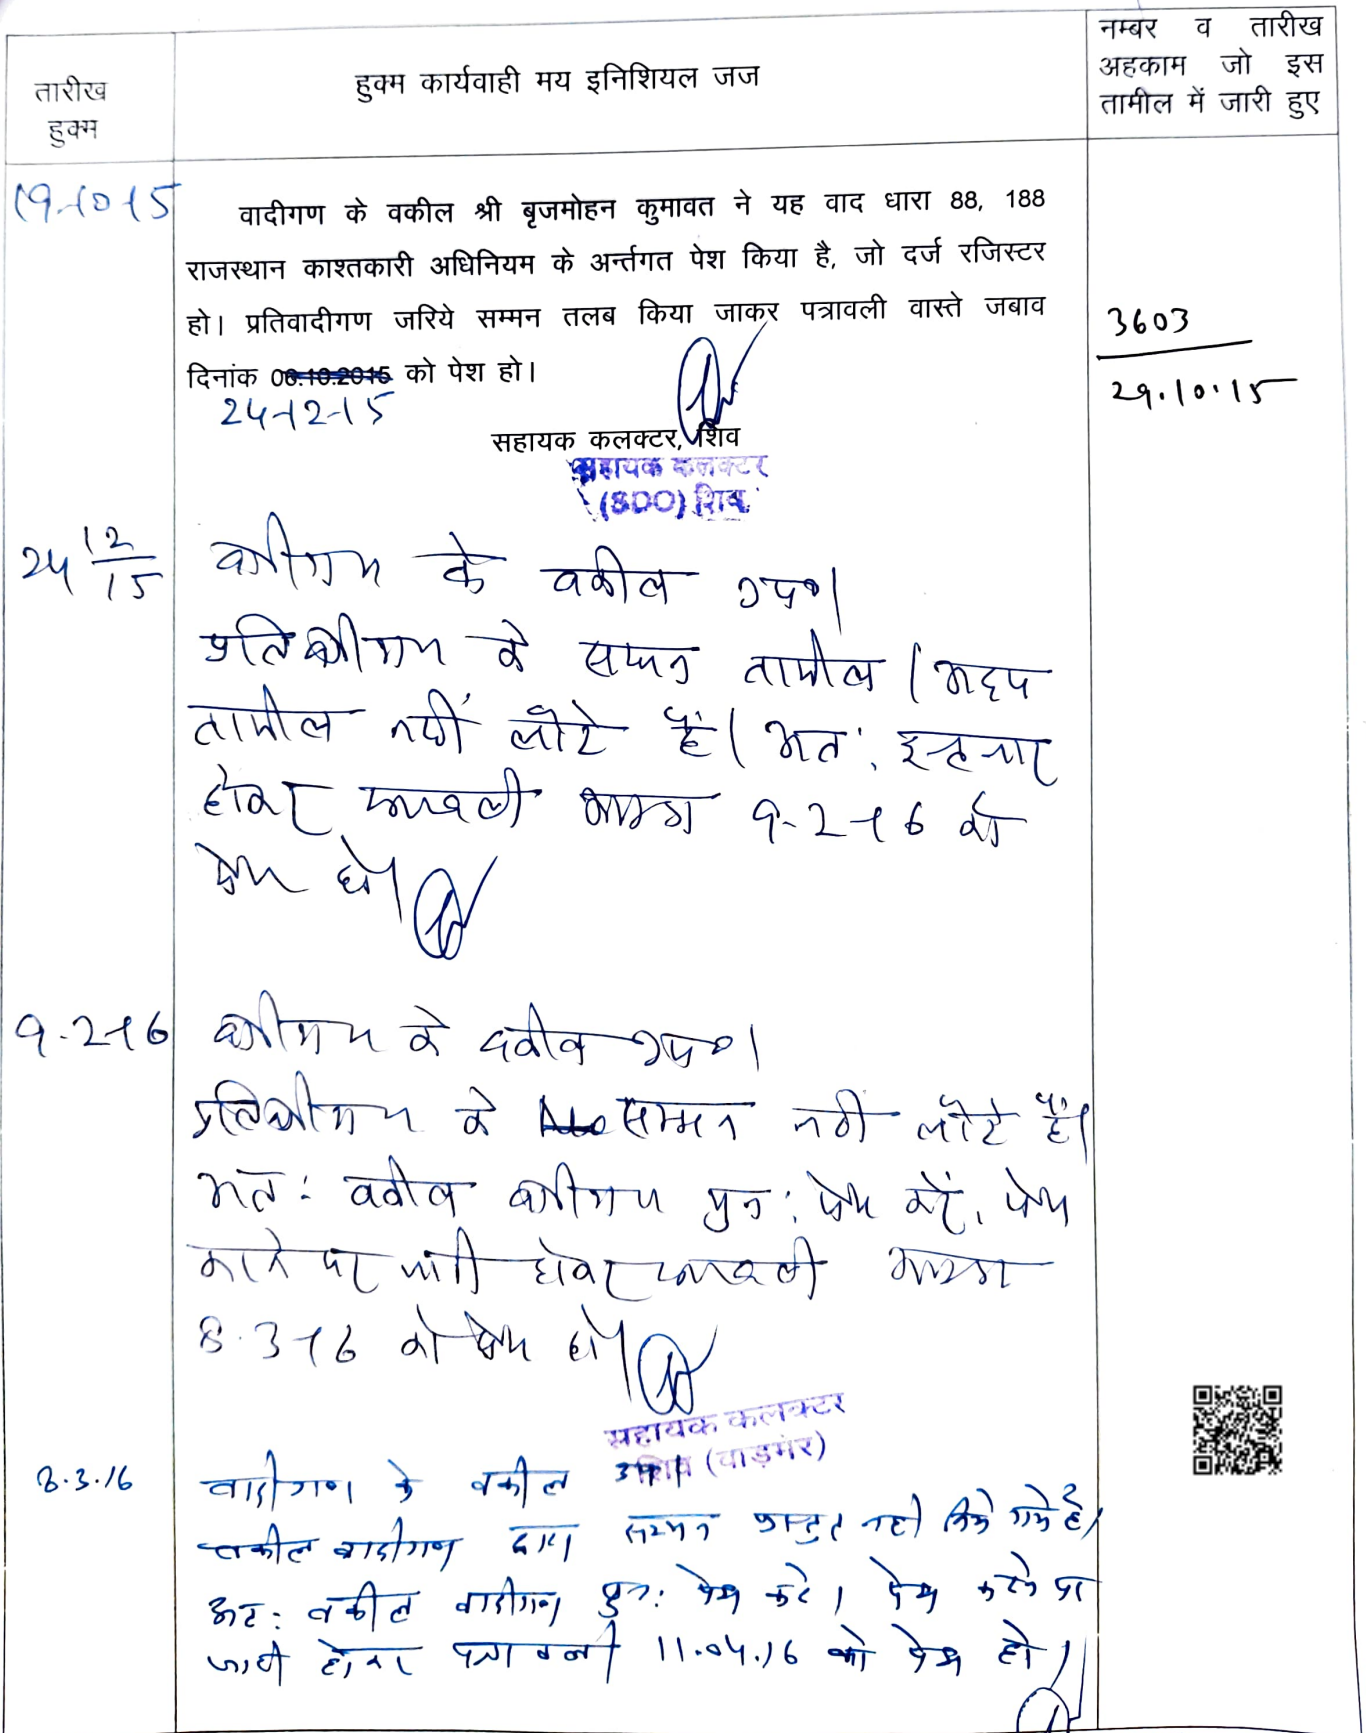 तारीख
हुक्म
हुक्म कार्यवाही मय इनिशियल जज
नम्बर व तारीख
अहकाम जो इस
तामील में जारी हुए
19-10-15
वादीगण के वकील श्री बृजमोहन कुमावत ने यह वाद धारा 88, 188
राजस्थान काश्तकारी अधिनियम के अर्न्तगत पेश किया है, जो दर्ज रजिस्टर
हो। प्रतिवादीगण जरिये सम्मन तलब किया जाकर पत्रावली वास्ते जबाव
दिनांक 06.10.2015 को पेश हो।
24-12-15
3603
29.10.15
सहायक कलक्टर, शिव
सहायक कलक्टर
(SDO) शिव
24 12/15
वादीगण के वकील उप०।
प्रतिवादीगण के सम्मन तामील / अदम
तामील नहीं लौटे हैं। अतः इन्तजार
होकर पत्रावली आइन्दा 9-2-16 को
पेश हो।
9-2-16
वादीगण के वकील उप०।
प्रतिवादीगण के सम्मन नहीं लौटे हैं।
अतः वकील वादीगण पुनः पेश करें, पेश
करने पर जारी होकर पत्रावली आइन्दा
8-3-16 को पेश हो।
सहायक कलक्टर
शिव (बाड़मेर)
8.3.16
वादीगण के वकील उप०।
वकील वादीगण द्वारा सम्मन प्रस्तुत नही किये गये है।
अतः वकील वादीगण पुनः पेश करे। पेश करने पर
जारी होकर पत्रावली 11.04.16 को पेश हो।